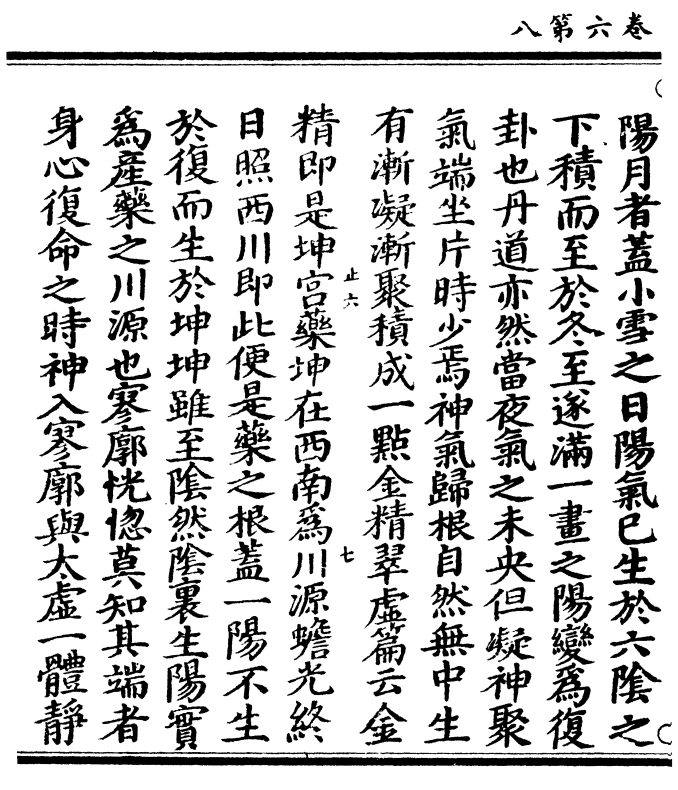 卷六第八
陽月者蓋小雪之日陽氣已生於六陰之
下積而至於冬至遂滿一畫之陽變爲復
卦也丹道亦然當夜氣之未央但凝神聚
氣端坐片時少焉神氣歸根自然無中生
有漸凝漸聚積成一點金精翠虛篇云金
止六
精即是坤宮藥坤在西南爲川源蟾光終
七
日照西川即此便是藥之根蓋一陽不生
於復而生於坤坤雖至陰然陰裏生陽實
爲產藥之川源也寥廓恍惚莫知其端者
身心復命之時神入寥廓與太虛一體靜